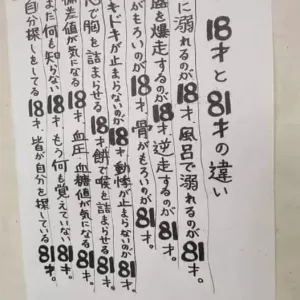 18才と81才の違い
に溺れるのが18才、風呂で溺れるのが81才。
路を爆走するのが18才、逆走するのが81才。
がもろいのが18才、骨がもろいのが81才。
キドキが止まらないのが18才、動悸が止まらないのが81才。
で胸を詰まらせる18才、餅で喉を詰まらせる81才。
偏差値が気になる18才、血圧・血糖値が気になる81才。
まだ何も知らない18才、もう何も覚えていない81才。
自分探しをしてる18才、皆が自分を探している81才。